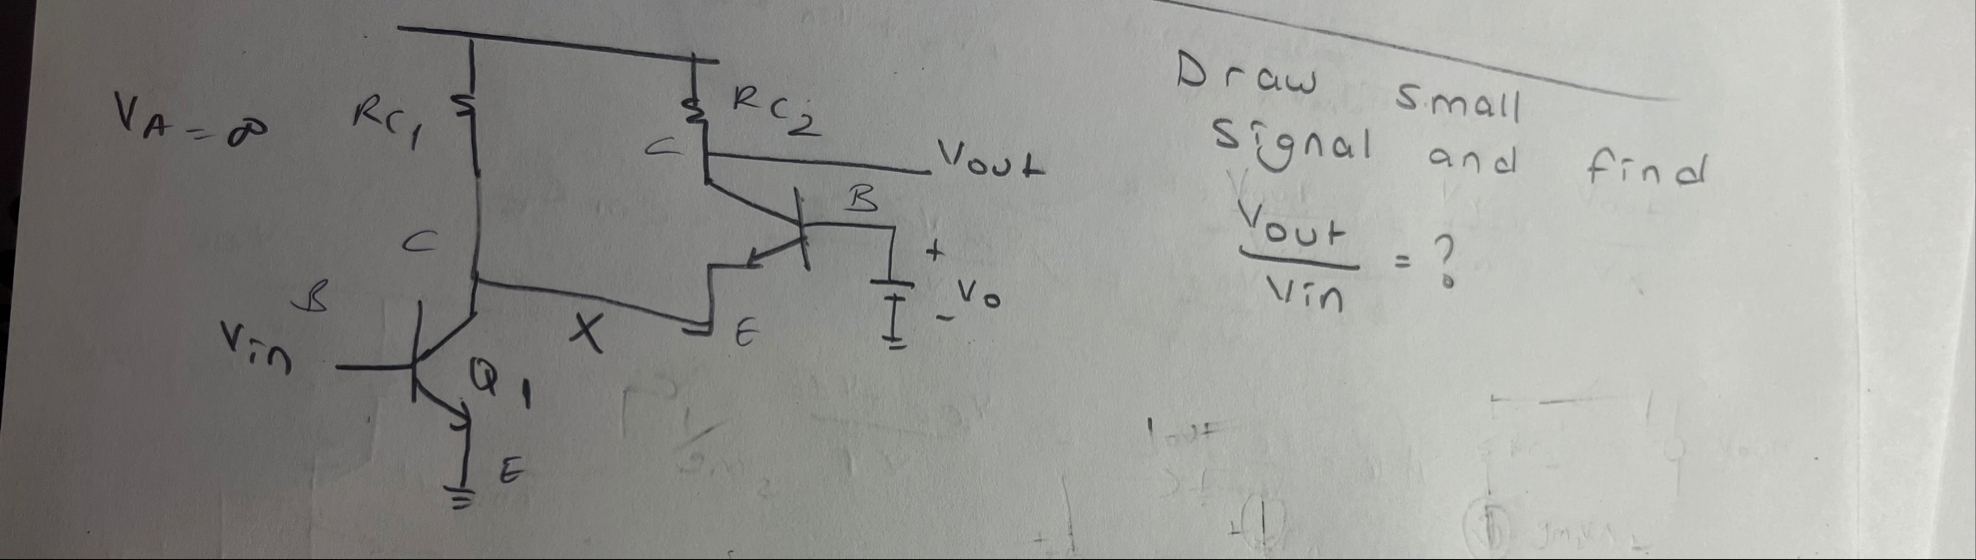 VA = ∞
RC1
RC2
C
Vout
B
C
+
- Vo
B
X
E
Vin
Q1
E
Draw small
signal and find
Vout
Vin
= ?